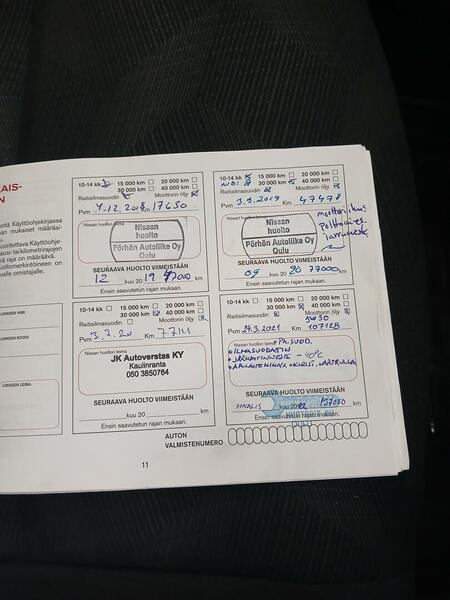 KAIS-
N
että Käyttöohjekirjassa
uoritettava Käyttöoh-
tausi-tai kilometrirajojen
vä raja on määräävä.
uoltomerkintöineen on
valle omistajalle.
LIIKKEEN NIMI
LIIKKEEN KOODI
LIIKKEEN LEIMA
10-14 kk 15 000 km 20 000 km
30 000 km 40 000 km
Raitisilmasuodin Moottorin öljy
Pvm 4.12.2018 Km 17650
Nissan huollon leima
Nissan
huolto
Pörhön Autoliike Oy
Oulu
SEURAAVA HUOLTO VIIMEISTÄÄN
12 kuu 20 19 47000 km
Ensin saavutetun rajan mukaan.
10-14 kk 15 000 km 20 000 km
30 000 km 40 000 km
Raitisilmasuodin Moottorin öljy
Pvm 3.9.2019 Km 47478
Nissan huollon leima
Nissan
huolto
Pörhön Autoliike Oy
Oulu
SEURAAVA HUOLTO VIIMEISTÄÄN
09 kuu 20 20 77000 km
Ensin saavutetun rajan mukaan.
10-14 kk 15 000 km 20 000 km
30 000 km 40 000 km
Raitisilmasuodin Moottorin öljy
Pvm 3.7.20 Km 77111
Nissan huollon leima
JK Autoverstas KY
Kauliinranta
050 3850764
SEURAAVA HUOLTO VIIMEISTÄÄN
kuu 20 km
Ensin saavutetun rajan mukaan.
10-14 kk 15 000 km 20 000 km
30 000 km 40 000 km
Raitisilmasuodin Moottorin öljy
5W30
Pvm 24.3.2021 Km 107128
Nissan huollon leima + PA.SUOD.
+ ILMASUODATIN
+ JÄÄHDYTINNESTE -40°C
SEURAAVA HUOLTO VIIMEISTÄÄN
MAALIS kuu 20 22 137000 km
Ensin saavutetun rajan mukaan.
AUTON
VALMISTENUMERO
11